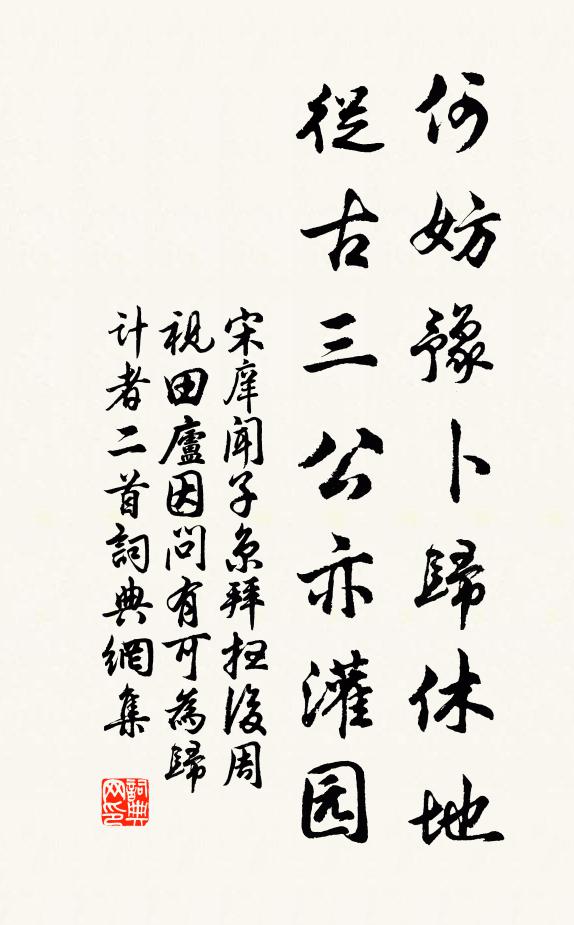 何妨豫卜歸休地
從古三公亦灌园
宋庠聞子京拜扫後周
視田廬因問有可為歸
计者二首詞典網集
詞典网印